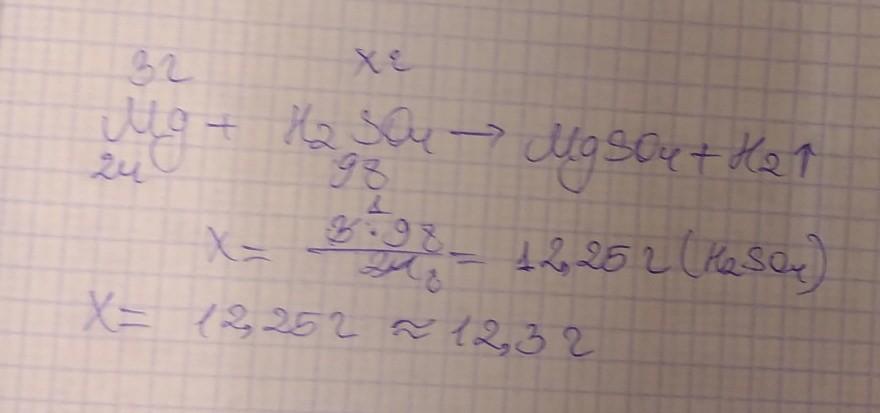 3г хг
Mg + H2SO4 → MgSO4 + H2↑
24 98
X = 3¹·98 / 24₈ = 12,25 г (H2SO4)
X = 12,25 г ≈ 12,3 г